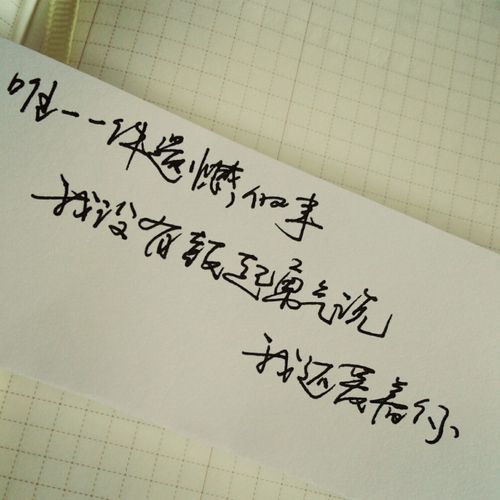 唯一一件遗憾的事
我没有鼓起勇气说
我还爱着你